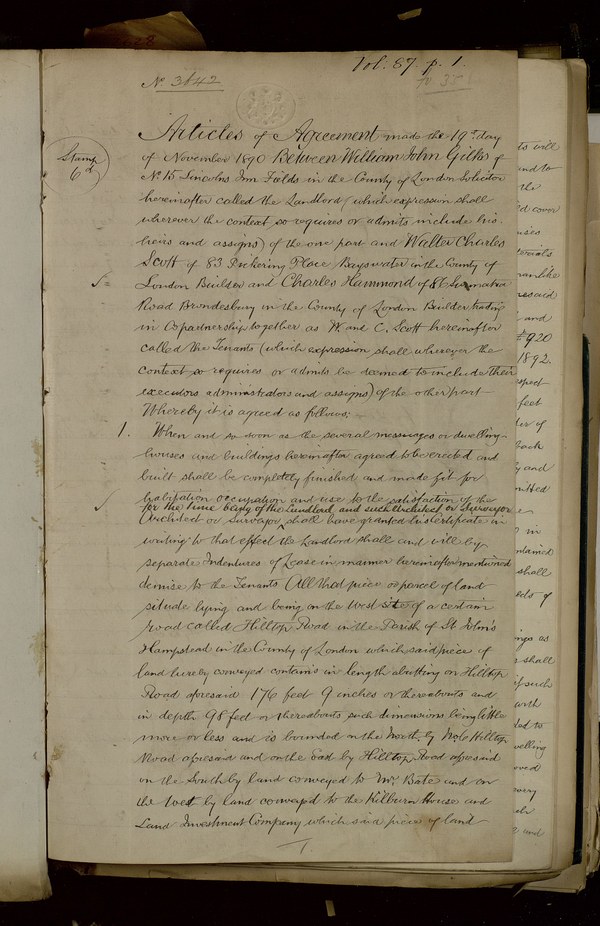 Vol. 87. p. 1.
No. 3642
Stamp
6d
Articles of Agreement made the 19th day
of November 1890 Between William John Gilks of
No. 15 Lincolns Inn Fields in the County of London Solicitor
hereinafter called the Landlord (which expression shall
wherever the context so requires or admits include his
heirs and assigns) of the one part and Walter Charles
Scott of 83 Pickering Place Bayswater in the County of
London Builder and Charles Hammond of
Road Brondesbury in the County of London Builder trading
in Copartnership together as W. and C. Scott hereinafter
called the Tenants (which expression shall wherever the
context so requires or admits be deemed to include their
executors administrators and assigns) of the other part
Whereby it is agreed as follows:
1. When and so soon as the several messuages or dwelling-
houses and buildings hereinafter agreed to be erected and
built shall be completely finished and made fit for
habitation occupation and use to the satisfaction of the
for the time being of the Landlord and such Architect or Surveyor
Architect or Surveyor shall have granted his Certificate in
writing to that effect the Landlord shall and will by
separate Indentures of Lease in manner hereinafter mentioned
demise to the Tenants (All that piece or parcel of land
situate lying and being on the West site of a certain
road called Hilltop Road in the Parish of St. John's
Hampstead in the County of London which said piece of
land hereby conveyed contains in length abutting on Hilltop
Road aforesaid 176 feet 9 inches or thereabouts and
in depth 98 feet or thereabouts such dimensions being little
more or less and is bounded on the North by No. 6 Hilltop
Road aforesaid and on the East by Hilltop Road aforesaid
on the South by land conveyed to Mr. Bate and on
the West by land conveyed to the Kilburn House and
Land Investment Company which said piece of land
1
ts will
and to
the
cover
uses
and
£920
1892.
feet
and
in
shall
of
as
shall
such
to
and